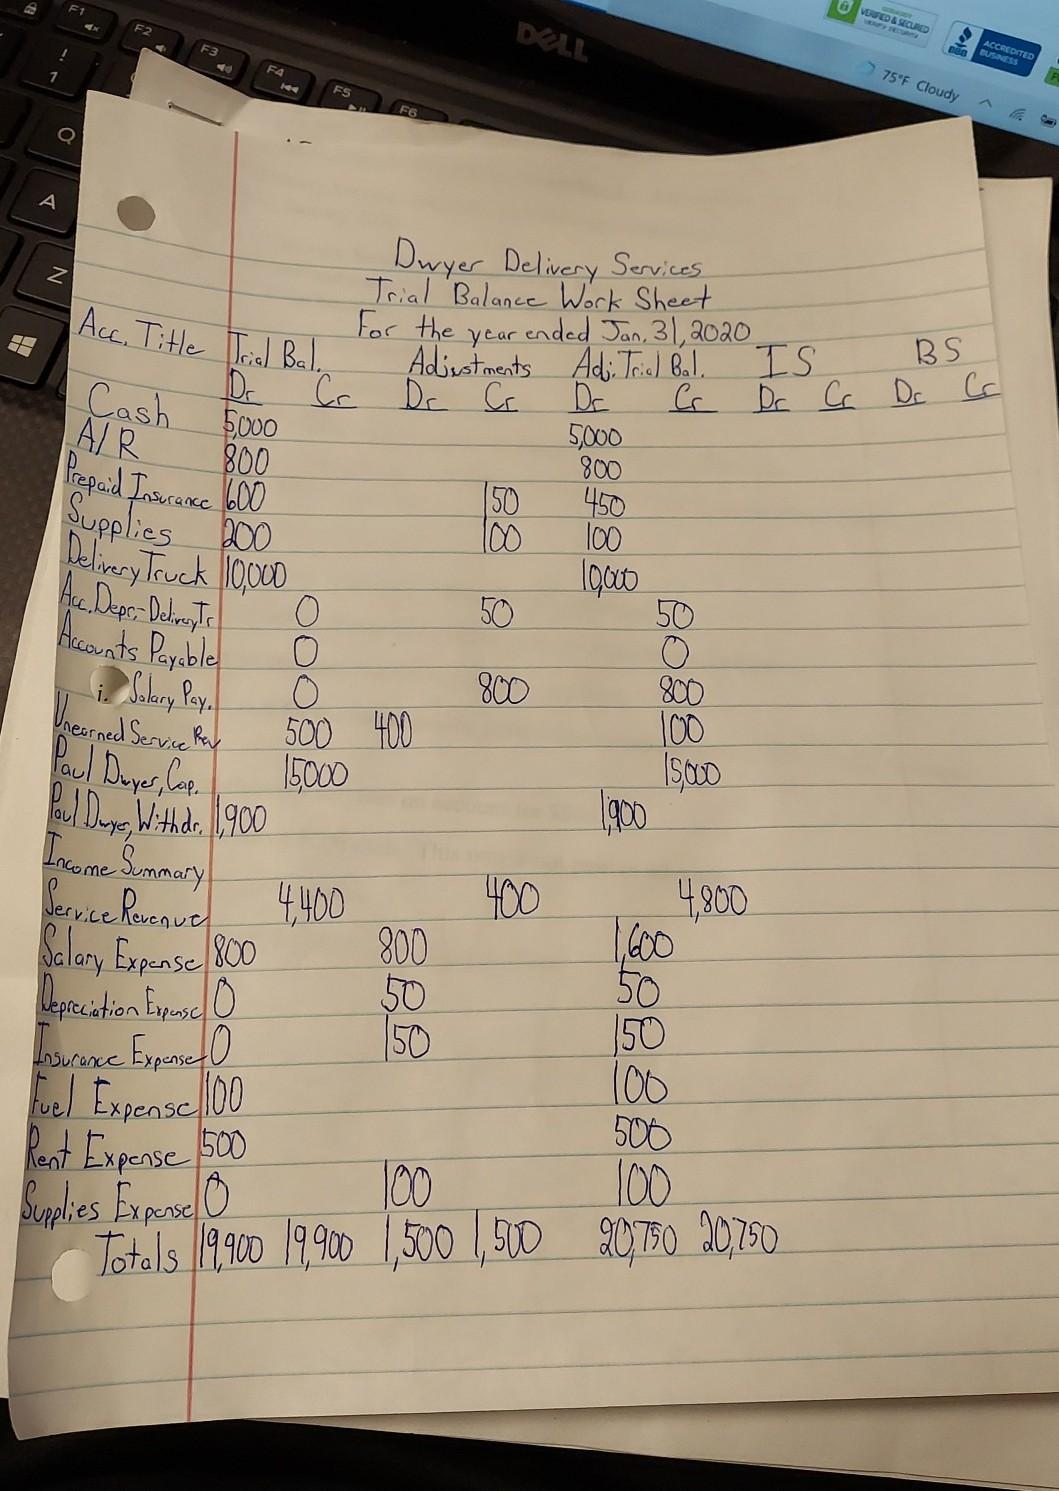 F1
F2
F3
F4
F5
F6
!
1
Q
A
Z
DELL
VERIFIED & SECURED
VERIFY SECURITY
BBB
ACCREDITED
BUSINESS
75°F Cloudy
Dwyer Delivery Services
Trial Balance Work Sheet
For the year ended Jan. 31, 2020
Acc. Title Trial Bal. Adjustments Adj. Trial Bal. IS BS
Dr Cr Dr Cr Dr Cr Dr Cr Dr Cr
Cash 5,000 5,000
A/R 800 800
Prepaid Insurance 600 150 450
Supplies 200 100 100
Delivery Truck 10,000 10,000
Acc. Depr.-Delivery Tr 0 50 50
Accounts Payable 0 0
i. Salary Pay. 0 800 800
Unearned Service Rev 500 400 100
Paul Dwyer, Cap. 15,000 15,000
Paul Dwyer, Withdr. 1,900 1,900
Income Summary
Service Revenue 4,400 400 4,800
Salary Expense 800 800 1,600
Depreciation Expense 0 50 50
Insurance Expense 0 150 150
Fuel Expense 100 100
Rent Expense 500 500
Supplies Expense 0 100 100
Totals 19,900 19,900 1,500 1,500 20,750 20,750